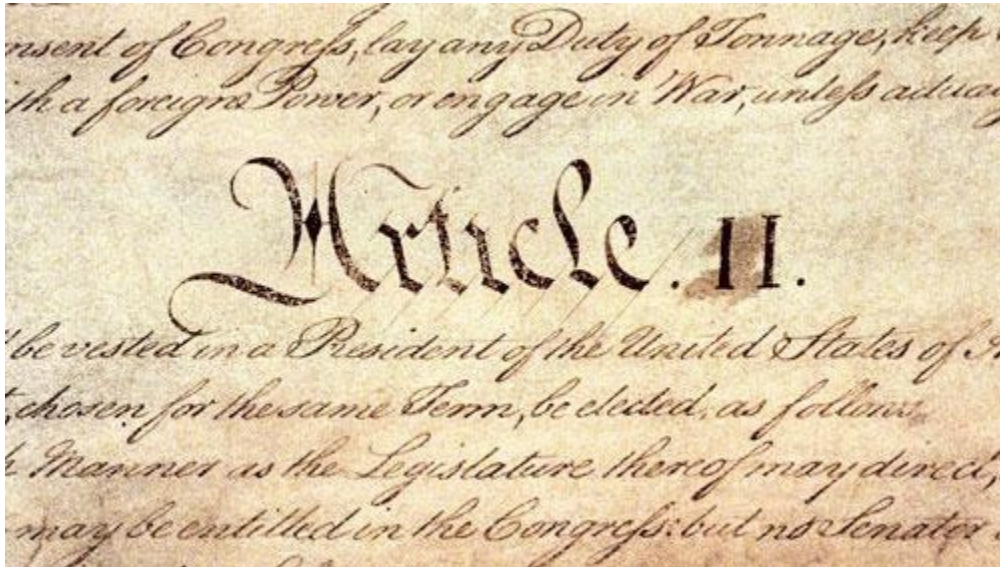 nsent of Congreſs, lay any Duty of Tonnage, keep
ith a foreign Power, or engage in War, unleſs actua
Article. II.
be vested in a President of the United States of A
t, chosen for the same Term, be elected, as follows
h Manner as the Legislature thereof may direct,
may be entitled in the Congreſs: but no Senator